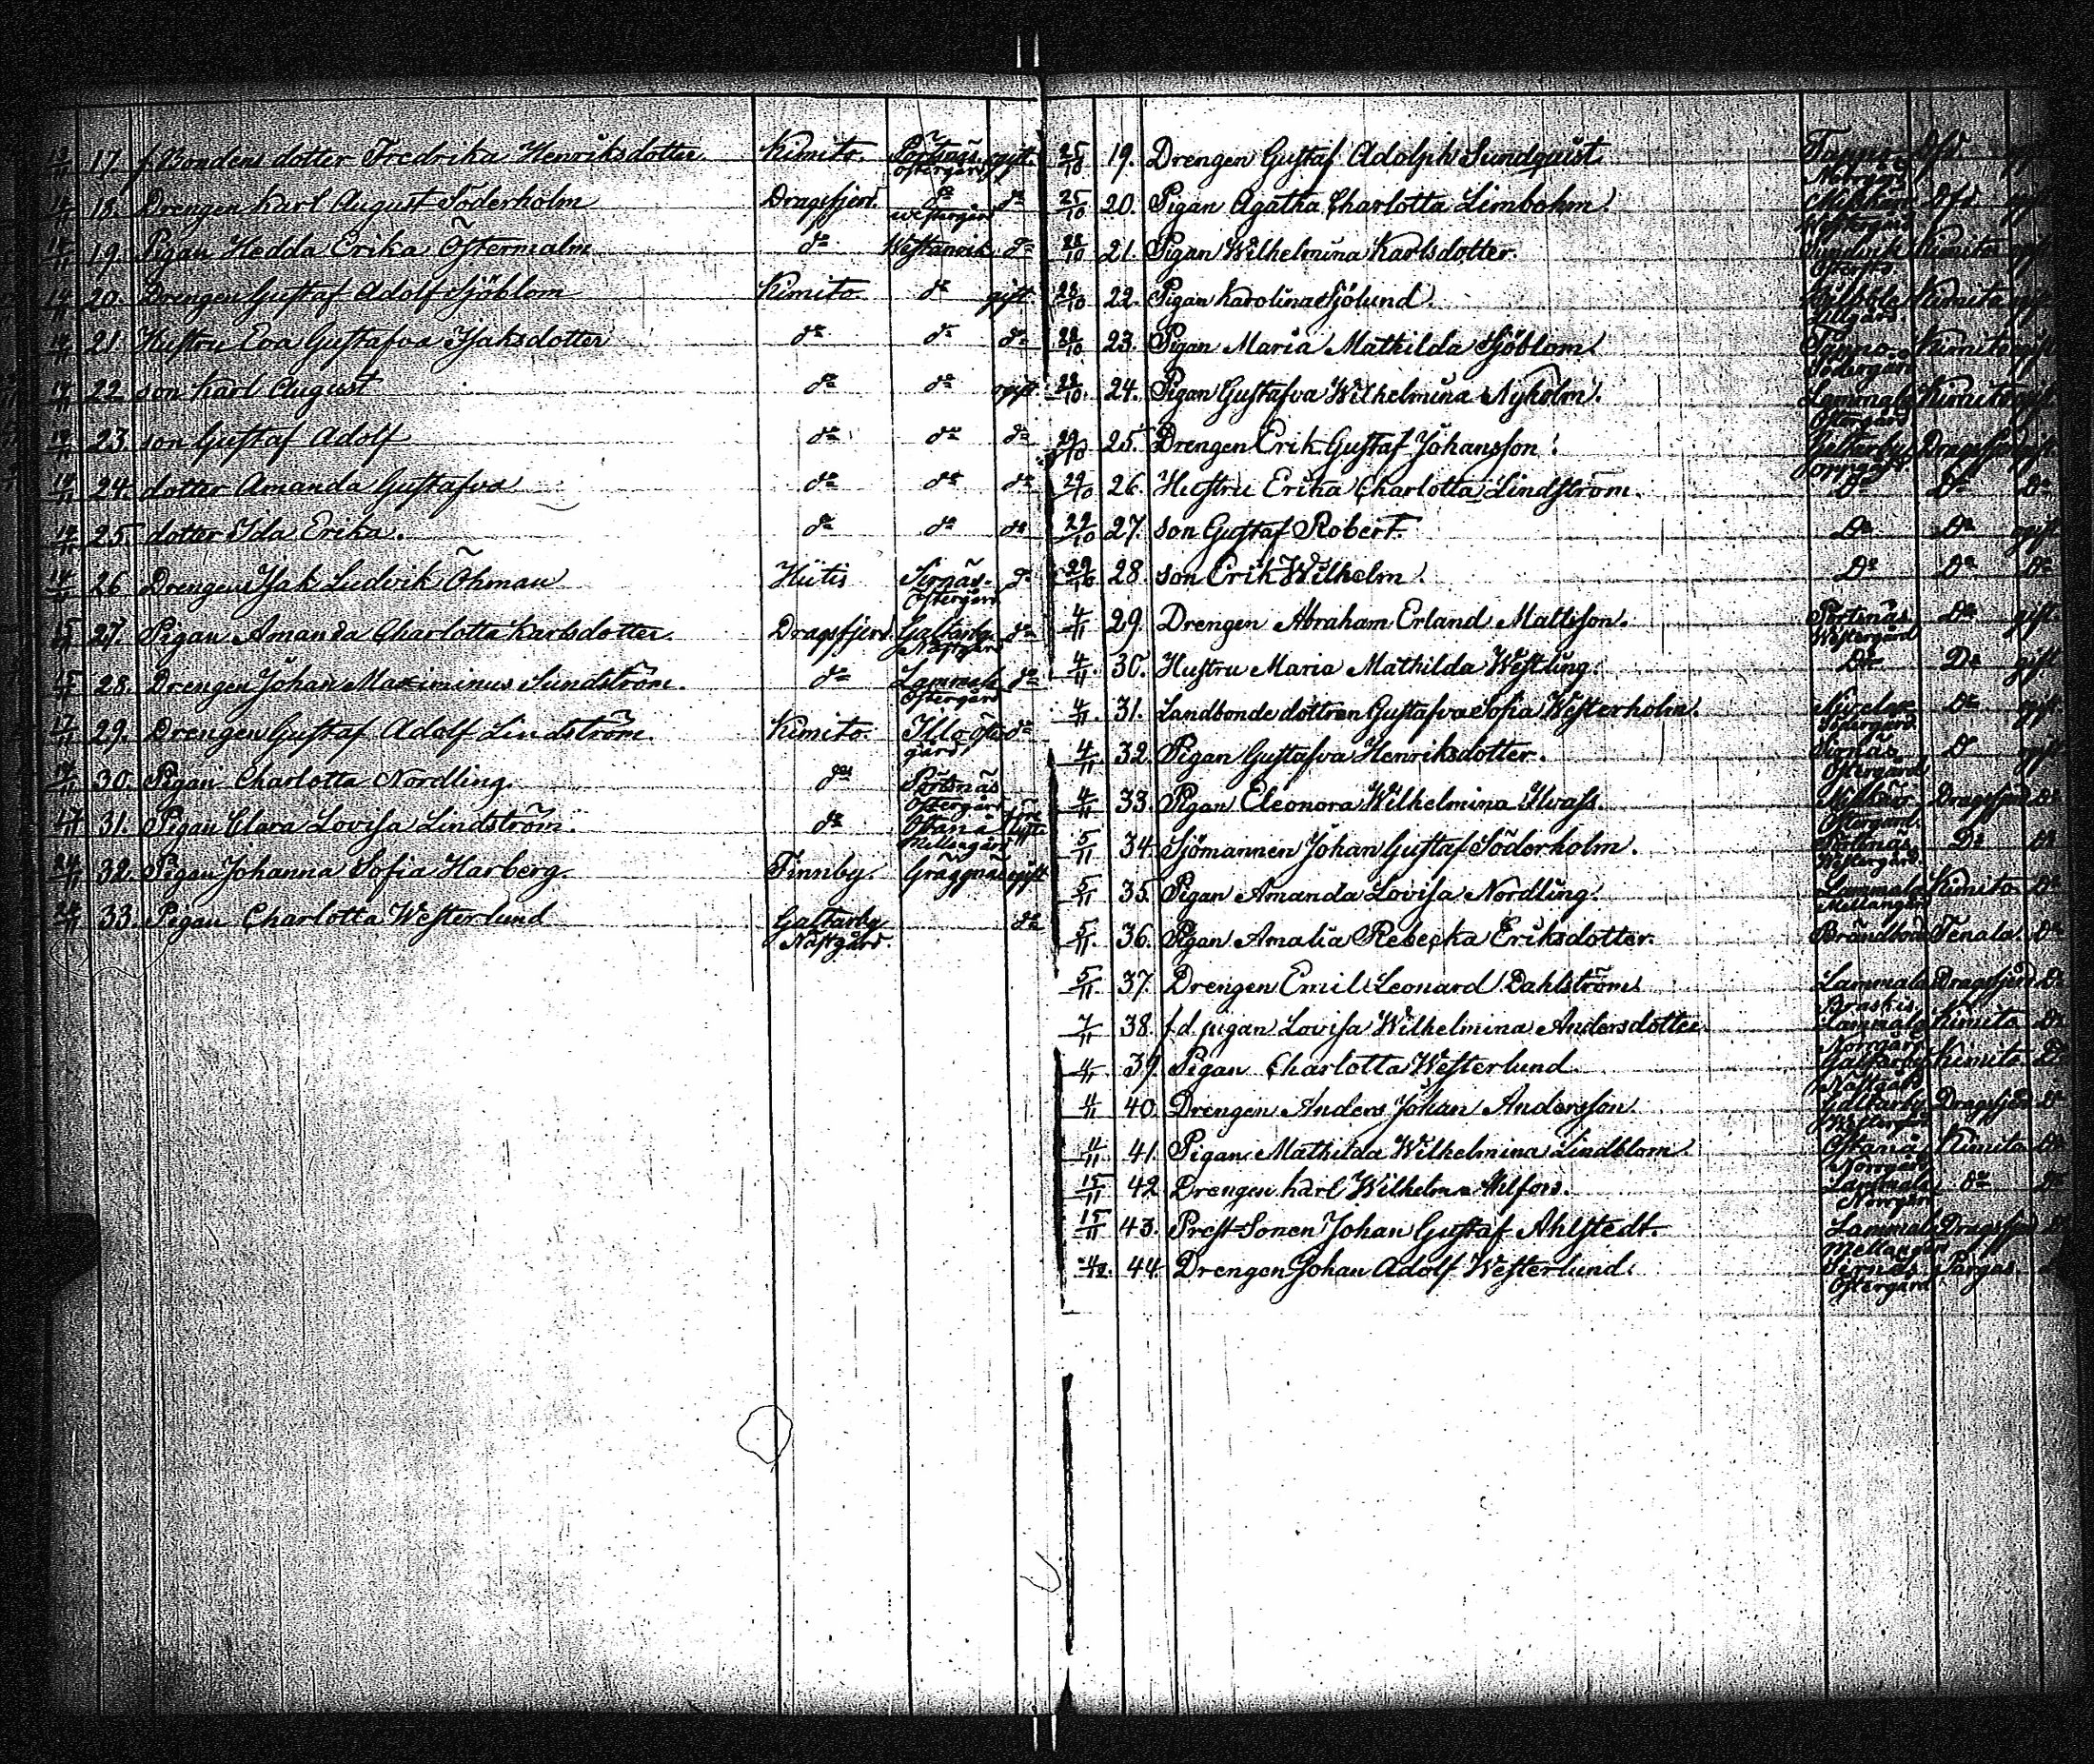 17. f. Bondens dotter Fredrika Henriksdotter. Kimito. Pörtsnäs Östergård ogift
18. Drengen Karl August Söderholm Dragsfjerd. do Westergård do
14/11 19. Pigan Hedda Erika Östermalm do Westanvik do
14/11 20. Drengen Gustaf Adolf Sjöblom Kimito. do gift
14/11 21. Hustru Eva Gustafva Isaksdotter do do do
14/11 22 son Karl August do do ogift
14/11 23. son Gustaf Adolf do do do
14/11 24. dotter Amanda Gustafva do do do
14/11 25. dotter Ida Erika. do do do
14/11 26 Drengen Isak Ludvik Öhman Hiitis Sirnäs Östergård do
15/11 27. Pigan Amanda Charlotta Karlsdotter. Dragsfjerd. Galtarby Näsgård do
15/11 28. Drengen Johan Maximinus Sundström. do Lammala Östergård do
17/11 29. Drengen Gustaf Adolf Lindström. Kimito Illo Östergård do
30. Pigan Charlotta Nordling. do Pörtsnäs Östergård
31. Pigan Clara Lovisa Lindström. do Östanå Mellangård
24/11 32. Pigan Johanna Sofia Harberg. Finnby. Gräggnäs ogift
33. Pigan Charlotta Westerlund Galtarby Näsgård do
25/10 19. Drengen Gustaf Adolph Sundquist.
25/10 20. Pigan Agatha Charlotta Limbohm.
28/10 21. Pigan Wilhelmina Karlsdotter. Kimito
28/10 22. Pigan Karolina Sjölund. Kimito
28/10 23. Pigan Maria Mathilda Sjöblom. Södergård Kimito
28/10 24. Pigan Gustafva Wilhelmina Nyholm. Lammala Östergård Kimito
29/10 25. Drengen Erik Gustaf Johansson. Norrgård Dragsfjerd gift.
29/10 26. Hustru Erika Charlotta Lindström. Do Do Do
29/10 27. son Gustaf Robert. Do Do ogift
29/10 28. son Erik Wilhelm. Do Do Do
4/11 29. Drengen Abraham Erland Mattsson. Pörtsnäs Westergård Do gift.
4/11. 30. Hustru Maria Mathilda Westling. Do Do gift
4/11. 31. Landbonde dottren Gustafva Sofia Westerholm. Södergård Do ogift
4/11 32. Pigan Gustafva Henriksdotter. Sirnäs Östergård D ogift
4/11 33. Pigan Eleonora Wilhelmina Hvass. Östergård. Dragsfjerd Do
5/11 34. Sjömannen Johan Gustaf Söderholm. Pörtsnäs Westergård. Do Do
5/11 35. Pigan Amanda Lovisa Nordling. Lammala Mellangård Kimito Do
5/11. 36. Pigan Amalia Rebecka Eriksdotter. Tenala. Do
5/11. 37. Drengen Emil Leonard Dahlström. Lammala Braskis Dragsfjerd Do
7/11 38. f.d. pigan Lovisa Wilhelmina Andersdotter. Lammala Norrgård Kimito Do
39. Pigan Charlotta Westerlund. Galtarby Näsgård Kimito Do
40. Drengen Anders Johan Andersson. Galtarby Westergård Dragsfjerd Do
11/11 41. Pigan Mathilda Wilhelmina Lindblom. Östanå Norrgård Kimito Do
15/11 42. Drengen Karl Wilhelm Ahlfors. Lammala Norrgård do Do
15/11 43. Prest-Sonen Johan Gustaf Ahlstedt. Lammala Mellangård Dragsfjerd Do
44. Drengen Johan Adolf Westerlund. Sirnäs Östergård Pargas.